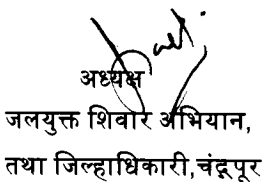 अध्यक्ष
जलयुक्त शिवार अभियान,
तथा जिल्हाधिकारी,चंद्रपूर